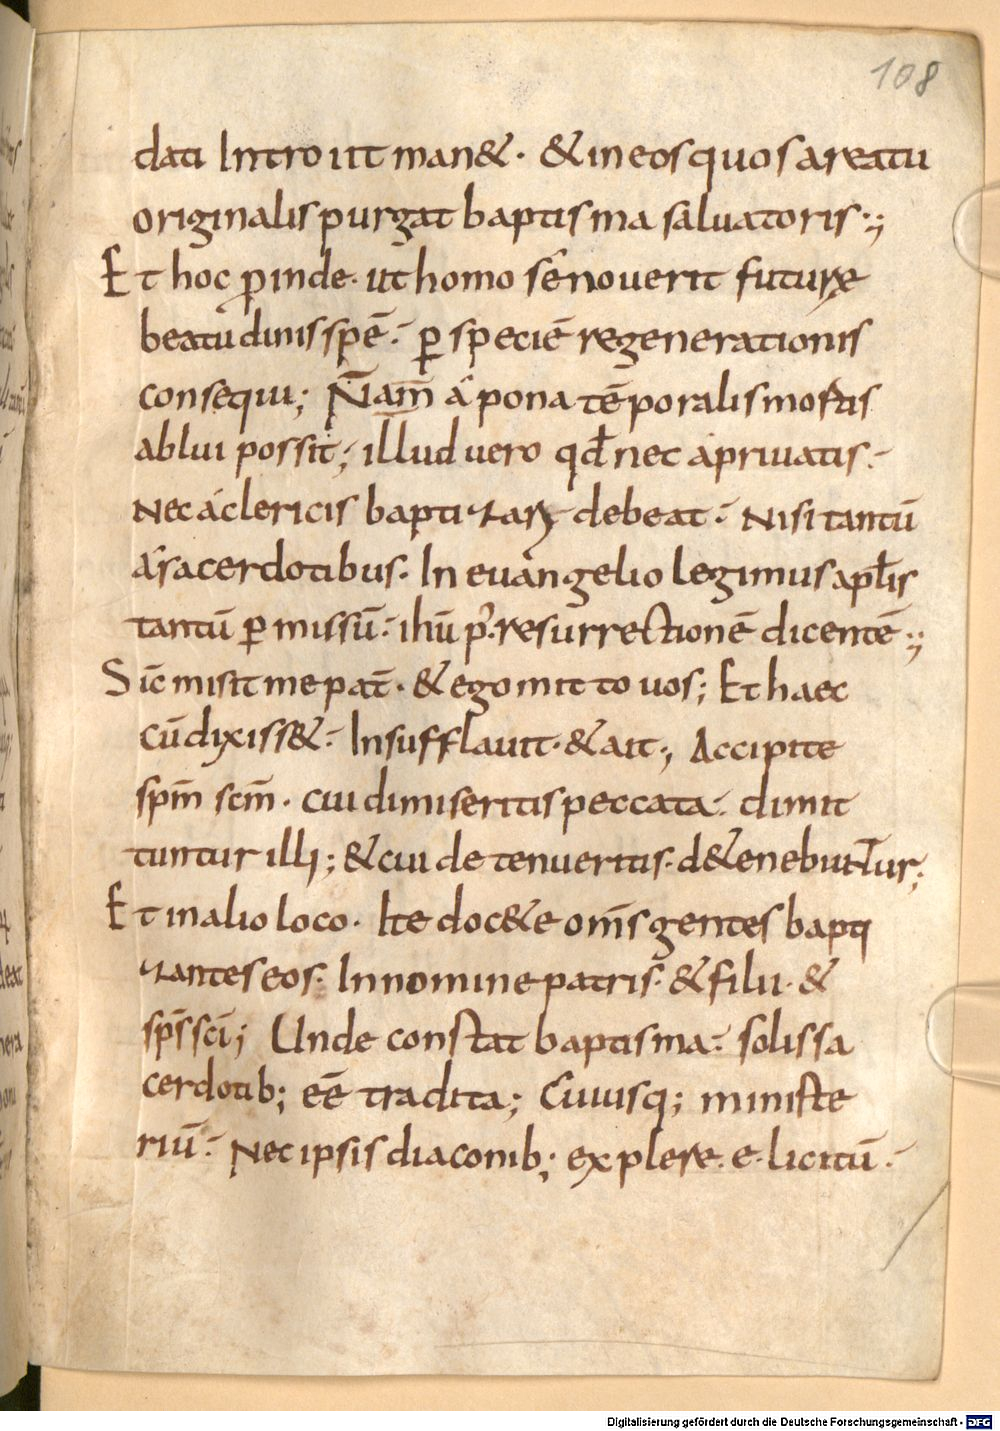 108
dati Introiit man&. & in eos quos a reatu
originalis purgat baptisma salvatoris:;
Et hoc ꝑinde. ut homo se noverit futurę
beatudinis spē. ꝑ speciē regenerationis
consequi; Nam á pona tēporalis mortis
ablui possit; illud vero qđ nec á privatis.
Nec á clericis baptizary debeat. Nisi tantū
á sacerdotibus. In evángelio legimus apłis
tantū ꝑmissū. ihū p̄. resurrectionē dicentē:;
Sic̄ misit me pat̄. & ego mitto vos; Et haec
cū dixiss&. Insufflavit. & ait; Accipite
spm̄ scm̄. cui dimiseritis peccata. dimit
tuntur illi; & cui detenueritis. d&enebuntur;
Et in alio loco. Ite doc&e om̄s gentes bapti
zantes eos. In nomine patris. & filii. &
sps̄ scī; Unde constat baptisma. solis sa
cerdotib; eē tradita; Cuiusq; ministe
riū. Nec ipsis diaconib; explere. e. licitū.
Digitalisierung gefördert durch die Deutsche Forschungsgemeinschaft - DFG